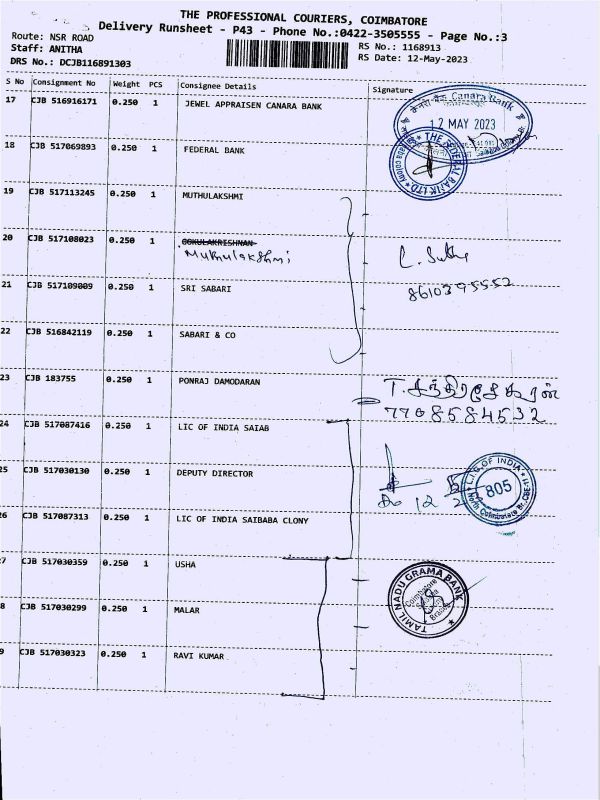 THE PROFESSIONAL COURIERS, COIMBATORE
Delivery Runsheet - P43 - Phone No.:0422-3505555 - Page No.:3
Route: NSR ROAD
RS No.: 1168913
Staff: ANITHA
RS Date: 12-May-2023
DRS No.: DCJB116891303
S No Consignment No Weight PCS Consignee Details Signature
17 CJB 516916171 0.250 1 JEWEL APPRAISEN CANARA BANK
Canara Bank
12 MAY 2023
18 CJB 517069893 0.250 1 FEDERAL BANK
THE FEDERAL BANK LTD
19 CJB 517113245 0.250 1 MUTHULAKSHMI
20 CJB 517108023 0.250 1 GOKULAKRISHNAN
Muthulakshmi
21 CJB 517109009 0.250 1 SRI SABARI
8610395552
22 CJB 516842119 0.250 1 SABARI & CO
23 CJB 183755 0.250 1 PONRAJ DAMODARAN
T. சந்திரசேகரன்
7708584532
24 CJB 517087416 0.250 1 LIC OF INDIA SAIAB
25 CJB 517030130 0.250 1 DEPUTY DIRECTOR
L.I.C. OF INDIA
805
26 CJB 517087313 0.250 1 LIC OF INDIA SAIBABA CLONY
27 CJB 517030359 0.250 1 USHA
TAMIL NADU GRAMA BANK
Coimbatore
Branch
28 CJB 517030299 0.250 1 MALAR
29 CJB 517030323 0.250 1 RAVI KUMAR